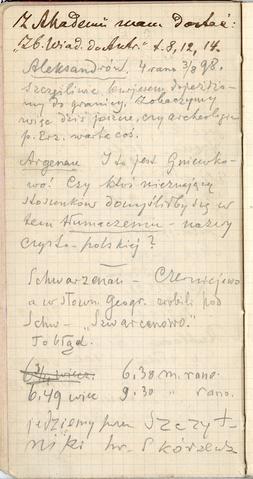 Z Akademii mam dostać:
"Zb. Wiad. do Antr." t. 8, 12, 14.
Aleksandrów. 4 rano 3/8 98.
Szczęśliwie kurjerem dojeżdża-
my do granicy. Zobaczymy
więc dziś jeszcze, czy archeologia
p. Erz. warta coś.
Argenau I to jest Gniewko-
wo! Czy ktoś nieznający
stosunków domyśliłby się w
tem tłumaczeniu - nazwy
czysto-polskiej?
Schwarzenau - Czerniejewo
a w Słown. Geogr. zrobili pod
Schw - "Szwarcenowo."
To błąd.
6.38 m. rano.
6.49 wiec 9.30 " rano.
jedziemy przez Szczyt-
niki hr. Skórzew